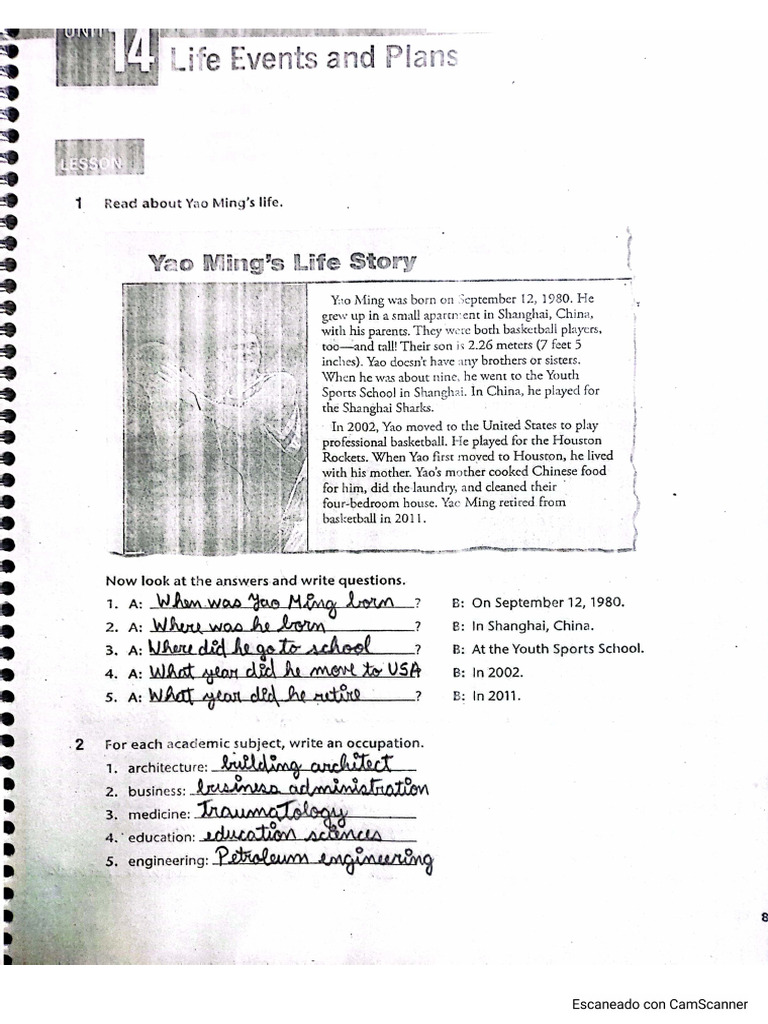 UNIT
14 Life Events and Plans
LESSON 1
1 Read about Yao Ming's life.
Yao Ming's Life Story
Yao Ming was born on September 12, 1980. He
grew up in a small apartment in Shanghai, China,
with his parents. They were both basketball players,
too—and tall! Their son is 2.26 meters (7 feet 5
inches). Yao doesn't have any brothers or sisters.
When he was about nine, he went to the Youth
Sports School in Shanghai. In China, he played for
the Shanghai Sharks.
In 2002, Yao moved to the United States to play
professional basketball. He played for the Houston
Rockets. When Yao first moved to Houston, he lived
with his mother. Yao's mother cooked Chinese food
for him, did the laundry, and cleaned their
four-bedroom house. Yao Ming retired from
basketball in 2011.
Now look at the answers and write questions.
1. A: When was Yao Ming born? B: On September 12, 1980.
2. A: Where was he born? B: In Shanghai, China.
3. A: Where did he go to school? B: At the Youth Sports School.
4. A: What year did he move to USA? B: In 2002.
5. A: What year did he retire? B: In 2011.
2 For each academic subject, write an occupation.
1. architecture: building architect
2. business: business administration
3. medicine: Traumatology
4. education: education sciences
5. engineering: Petroleum engineering
8
Escaneado con CamScanner